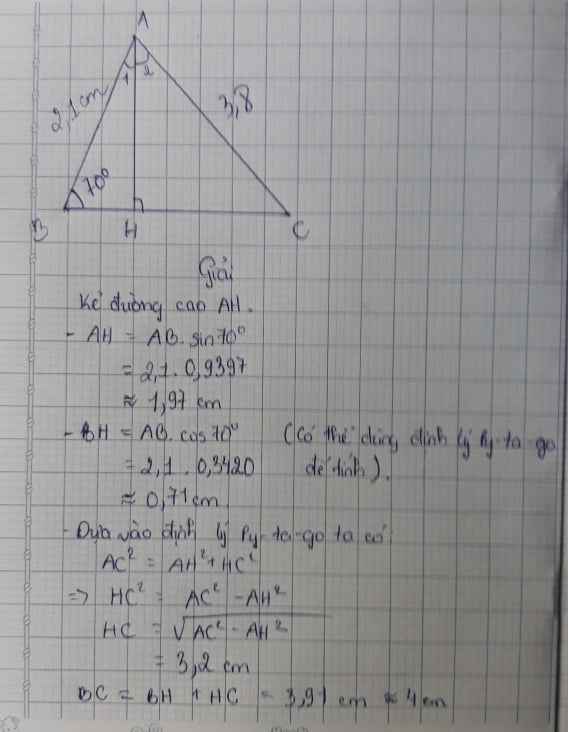 A
1 2
2,1 cm
3,8
70°
B H C
Giải
Kẻ đường cao AH.
- AH = AB. sin70°
= 2,1. 0,9397
≈ 1,97 cm
- BH = AB. cos70° (Có thể dùng định lý Py-ta-go
= 2,1. 0,3420 để tính).
≈ 0,71 cm.
- Dựa vào định lý Py-ta-go ta có:
AC² = AH² + HC²
=> HC² = AC² - AH²
HC = √AC² - AH²
= 3,2 cm
BC = BH + HC = 3,91 cm ≈ 4 cm